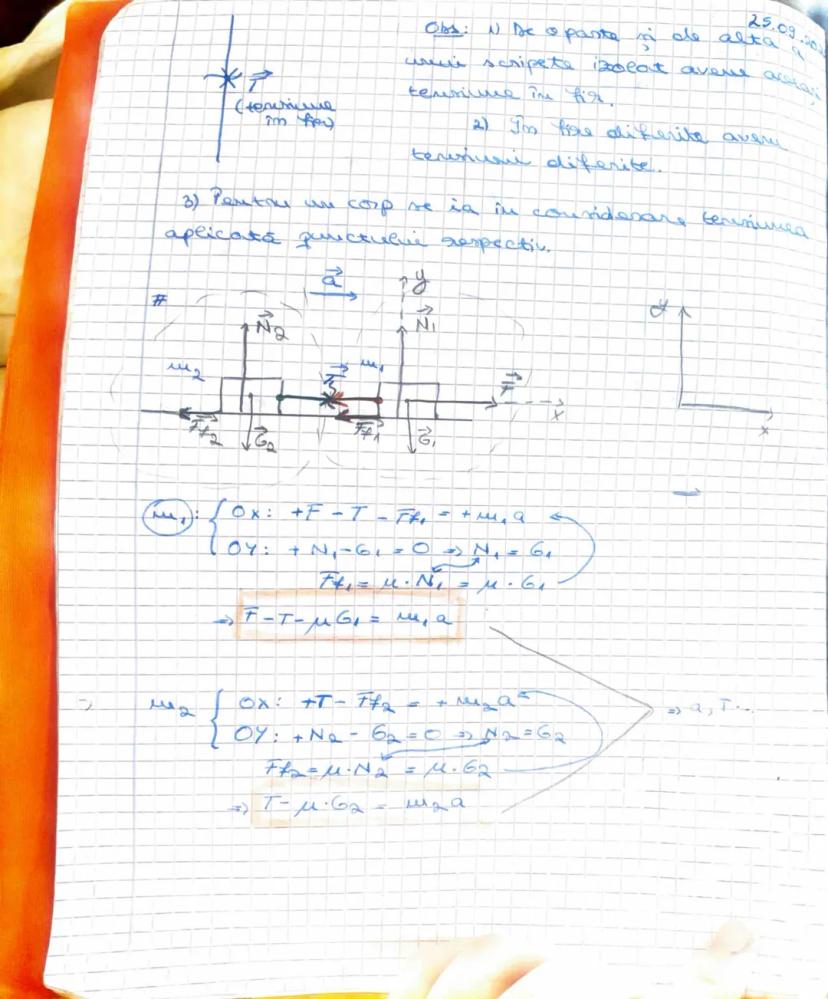 25.09.202
Obs: 1) De o parte și de alta a
unui scripete izolat avem aceeași
tensiune în fir.
2) În fire diferite avem
tensiuni diferite.
T
(tensiune
în fir)
3) Pentru un corp se ia în considerare tensiunea
aplicată punctului respectiv.
a
y
#
N2
N1
y
m2
T
m1
F
x
Ff2
G2
Ff1
G1
x
m1: { OX: +F - T - Ff1 = +m1a
OY: +N1 - G1 = 0 => N1 = G1
Ff1 = μ · N1 = μ · G1
=> F - T - μG1 = m1a
=> m2 { OX: +T - Ff2 = +m2a
=> a, T...
OY: +N2 - G2 = 0 => N2 = G2
Ff2 = μ · N2 = μ · G2
=> T - μ · G2 = m2a